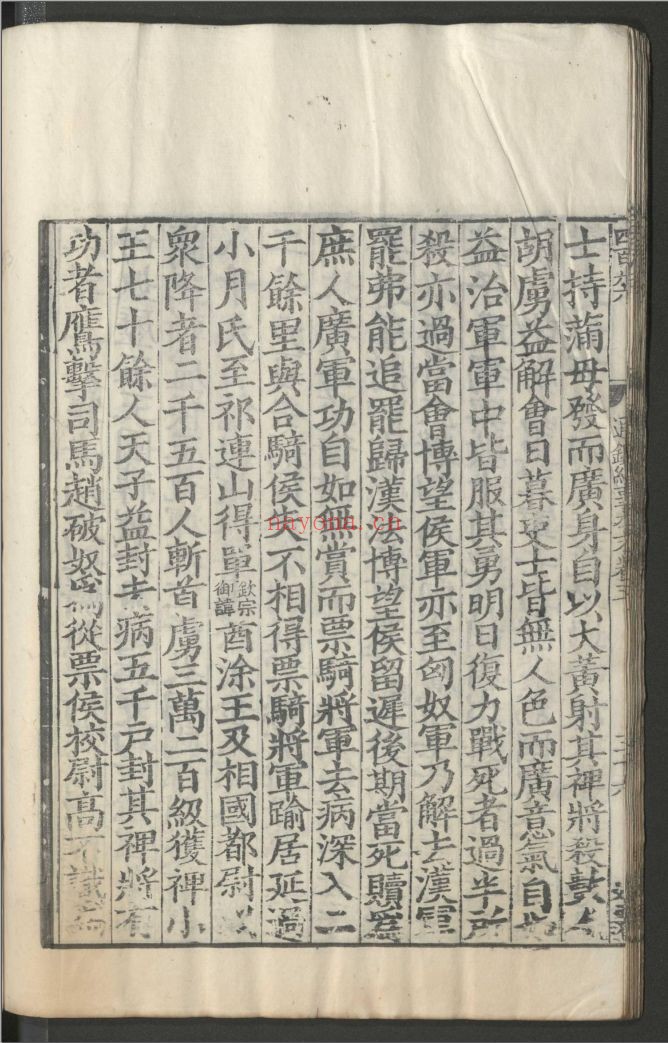 士持滿毋發而廣身自以大黃射其裨將殺數人
胡虜益解會日暮吏士皆無人色而廣意氣自如
益治軍軍中皆服其勇明日復力戰死者過半所
殺亦過當會博望侯軍亦至匈奴軍乃解去漢軍
罷弗能追罷歸漢法博望侯留遲後期當死贖為
庶人廣軍功自如無賞而票騎將軍去病深入二
千餘里與合騎侯失不相得票騎將軍踰居延過
小月氏至祁連山得單欽宗御諱酋涂王及相國都尉以
衆降者二千五百人斬首虜三萬二百級獲裨小
王七十餘人天子益封去病五千戶封其裨將有
功者鷹擊司馬趙破奴為從票侯校尉高不識為
nayona.cn